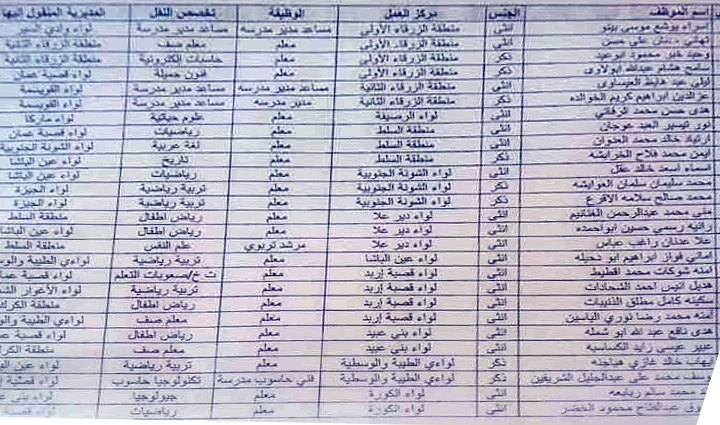 اسم الموظف الجنس مركز العمل الوظيفة تخصص النقل المديرية المنقول اليها
اسراء يوشع موسى انثى منطقة الزرقاء الأولى مساعد مدير مدرسة مساعد مدير مدرسة لواء وادي السير
علي حسن انثى منطقة الزرقاء الأولى معلم معلم صف منطقة الزرقاء الثانية
محمود ابوعيد ذكر منطقة الزرقاء الأولى معلم حاسبات إلكترونية منطقة الزرقاء الثانية
سامح هشام عبدالله ابولاوي ذكر منطقة الزرقاء الأولى معلم فنون جميلة لواء قصبة عمان
ليلى عيد العيساوي انثى منطقة الزرقاء الثانية مساعد مدير مدرسة مساعد مدير مدرسة لواء القويسمة
عز الدين ابراهيم كريم الخوالده ذكر منطقة الزرقاء الثانية مدير مدرسه مساعد مدير مدرسة لواء القويسمة
هدى حسن محمد الرفاتي انثى لواء الرصيفة معلم علوم حياتية لواء ماركا
نور تيسير العبد عوجان انثى منطقة السلط معلم رياضيات لواء قصبة عمان
خالد محمد العنوان انثى منطقة السلط معلم لغة عربية لواء الشونة الجنوبية
ايمن محمد فلاح الخرابشه ذكر منطقة السلط معلم تاريخ لواء عين الباشا
اسماء اسعد خالد عقل انثى لواء الشونة الجنوبية معلم رياضيات لواء عين الباشا
محمد سليمان سلمان العوايشه ذكر لواء الشونة الجنوبية معلم تربية رياضية لواء الجيزة
محمد صالح سلامه الاقرع ذكر لواء الشونة الجنوبية معلم تربية رياضية لواء الجيزة
منى محمد عبدالرحمن الغنانيم انثى لواء دير علا معلم رياض اطفال منطقة السلط
رانيه رسمي حسين ابواحمده انثى لواء دير علا معلم رياض اطفال لواء عين الباشا
علا عدنان راغب عباس انثى لواء دير علا مرشد تربوي علم النفس منطقة السلط
اماني فواز ابراهيم ابو نحيله انثى لواء عين الباشا معلم تربية رياضية لواءي الطيبة والوس
امنه شوكات محمد اقطيط انثى لواء قصبة إربد معلم ت خ/صعوبات التعلم لواء قصبة عما
هديل انيس احمد الشحادات انثى لواء قصبة إربد معلم تربية رياضية لواء الأغوار الش
سكينه كامل مطلق الذنيبات انثى لواء قصبة إربد معلم رياض اطفال منطقة الكرك
امنه محمد رضا نوري الياسين انثى لواء قصبة إربد معلم معلم صف لواءي الطيبة والو
هدى نافع عبد الله ابو شمله انثى لواء بني عبيد معلم رياض اطفال لواء قصبة عم
عبير عيسى زايد الكساسبه انثى لواء بني عبيد معلم معلم صف منطقة الكر
ايهاب خالد غازي هياجنه ذكر لواءي الطيبة والوسطية معلم تربية رياضية لواء عين ال
محمد علي عبدالجليل الشريفين ذكر لواءي الطيبة والوسطية فني حاسوب مدرسة تكنولوجيا حاسوب لواء قصبة إ
محمد سالم ربايعه انثى لواء الكورة معلم جيولوجيا لواء بني ع
عبدالفتاح محمود الخضر انثى لواء الكورة معلم رياضيات لواء قصبة